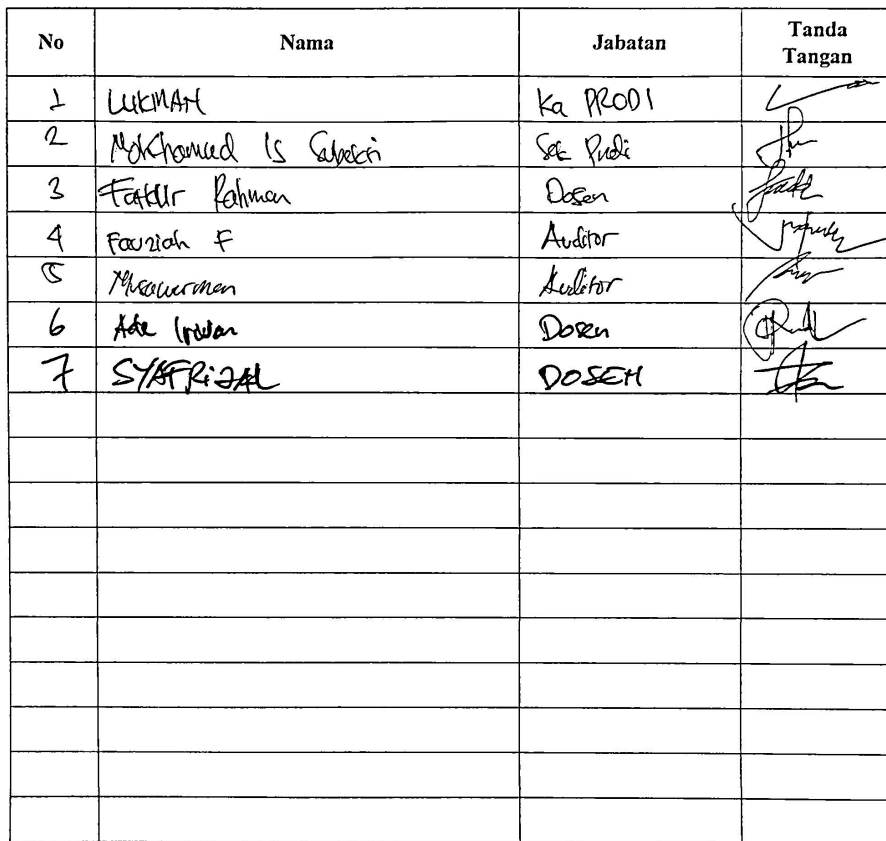 No Nama Jabatan Tanda Tangan
1 LUKMAN Ka PRODI
2 Mokhamad Is Sek Prodi
3 Fatkur Rahman Dosen
4 Fauziah F Auditor
5 Musawarman Auditor
6 Ade Irwan Dosen
7 SYAFRiZAL DOSEN